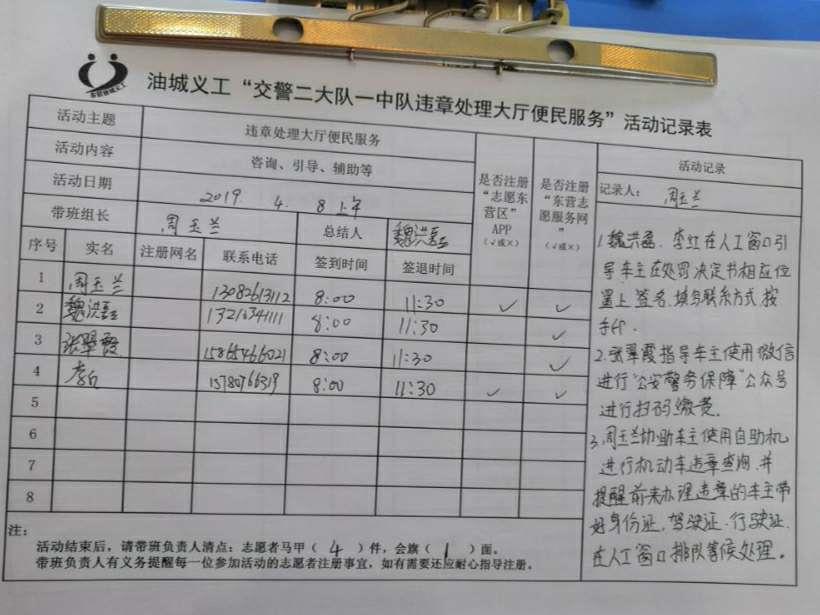 油城义工“交警二大队一中队违章处理大厅便民服务”活动记录表
活动主题 违章处理大厅便民服务
活动内容 咨询、引导、辅助等
活动日期 2019. 4. 8 上午
带班组长 周玉兰 总结人
是否注册“志愿东营区”APP（√或×）
是否注册“东营志愿服务网”（√或×）
序号 实名 注册网名 联系电话 签到时间 签退时间
1 周玉兰 13082613112 8:00 11:30 ✓ ✓
2 8:00 11:30 ✓
3 张翠霞 15865466021 8:00 11:30 ✓
4 8:00 11:30 ✓ ✓
5
6
7
8
活动记录
记录人： 周玉兰
在人工窗口引
导车主在处罚决定书相应位
置上签名、填写联系方式、按
手印。
2.张翠霞指导车主使用微信
进行“公安警务保障”公众号
进行扫码缴费。
3.周玉兰协助车主使用自助机
进行机动车违章查询，并
提醒前来办理违章的车主带
好身份证、驾驶证、行驶证，
在人工窗口排队等候处理。
注：
活动结束后，请带班负责人清点：志愿者马甲（ 4 ）件，会旗（ 1 ）面。
带班负责人有义务提醒每一位参加活动的志愿者注册事宜，如有需要还应耐心指导注册。